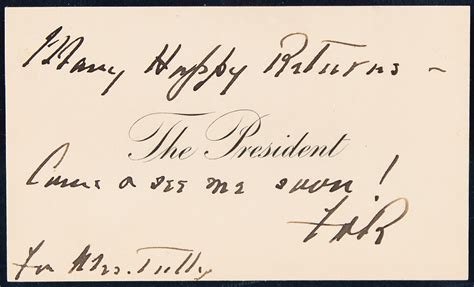 Many Happy Returns –
The President
Come & see me soon!
FDR
for Mrs. Tully